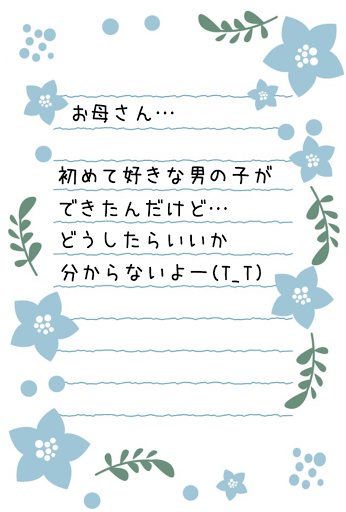 お母さん…
初めて好きな男の子が
できたんだけど…
どうしたらいいか
分からないよー(T_T)